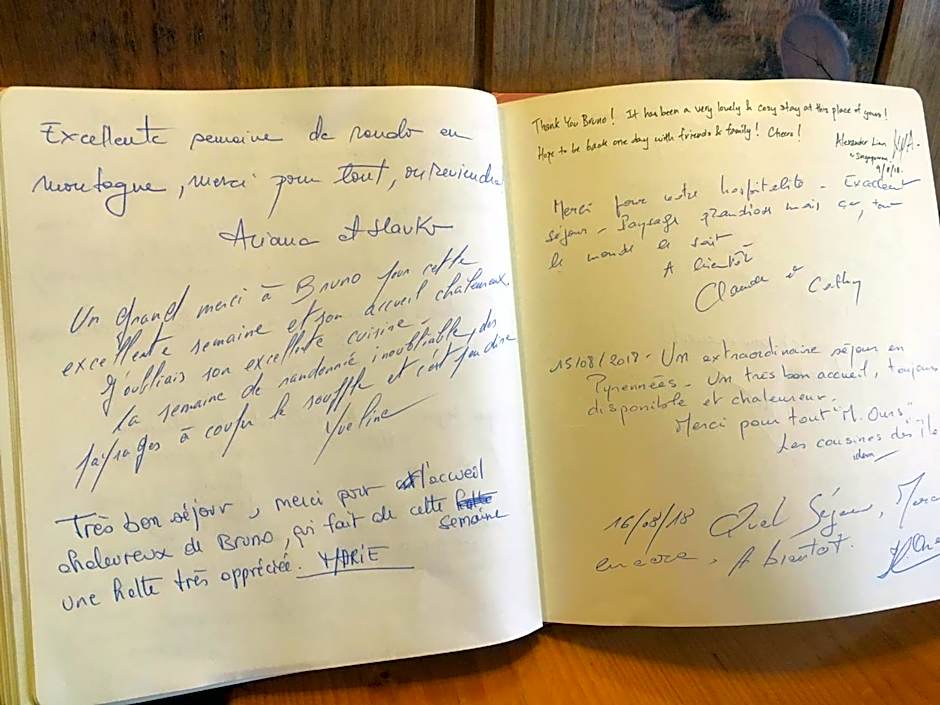 Excellente semaine de rando en
montagne, merci pour tout, on reviendra
Ariana et Slavko
Un grand merci à Bruno pour cette
excellente semaine et son accueil chaleureux.
J'oubliais son excellente cuisine -
La semaine de randonnée inoubliable, des
paysages à couper le souffle et c'est peu dire
Yveline
Très bon séjour, merci pour l'accueil
chaleureux de Bruno, qui fait de cette semaine
une halte très appréciée. MARIE
Thank You Bruno! It has been a very lovely & cozy stay at this place of yours!
Hope to be back one day with friends & family! Cheers!
Alexander Lian
Singapore
9/8/18.
Merci pour votre hospitalité - Excellent
séjour - Paysage grandiose mais ça, tout
le monde le sait
A bientôt
Claude et Cathy
15/08/2018 - Un extraordinaire séjour en
Pyrennées. Un très bon accueil, toujours
disponible et chaleureux.
Merci pour tout "M. Ours"
Les cousines des
idem
16/08/18 Quel Séjour, Merci
encore, A bientôt.